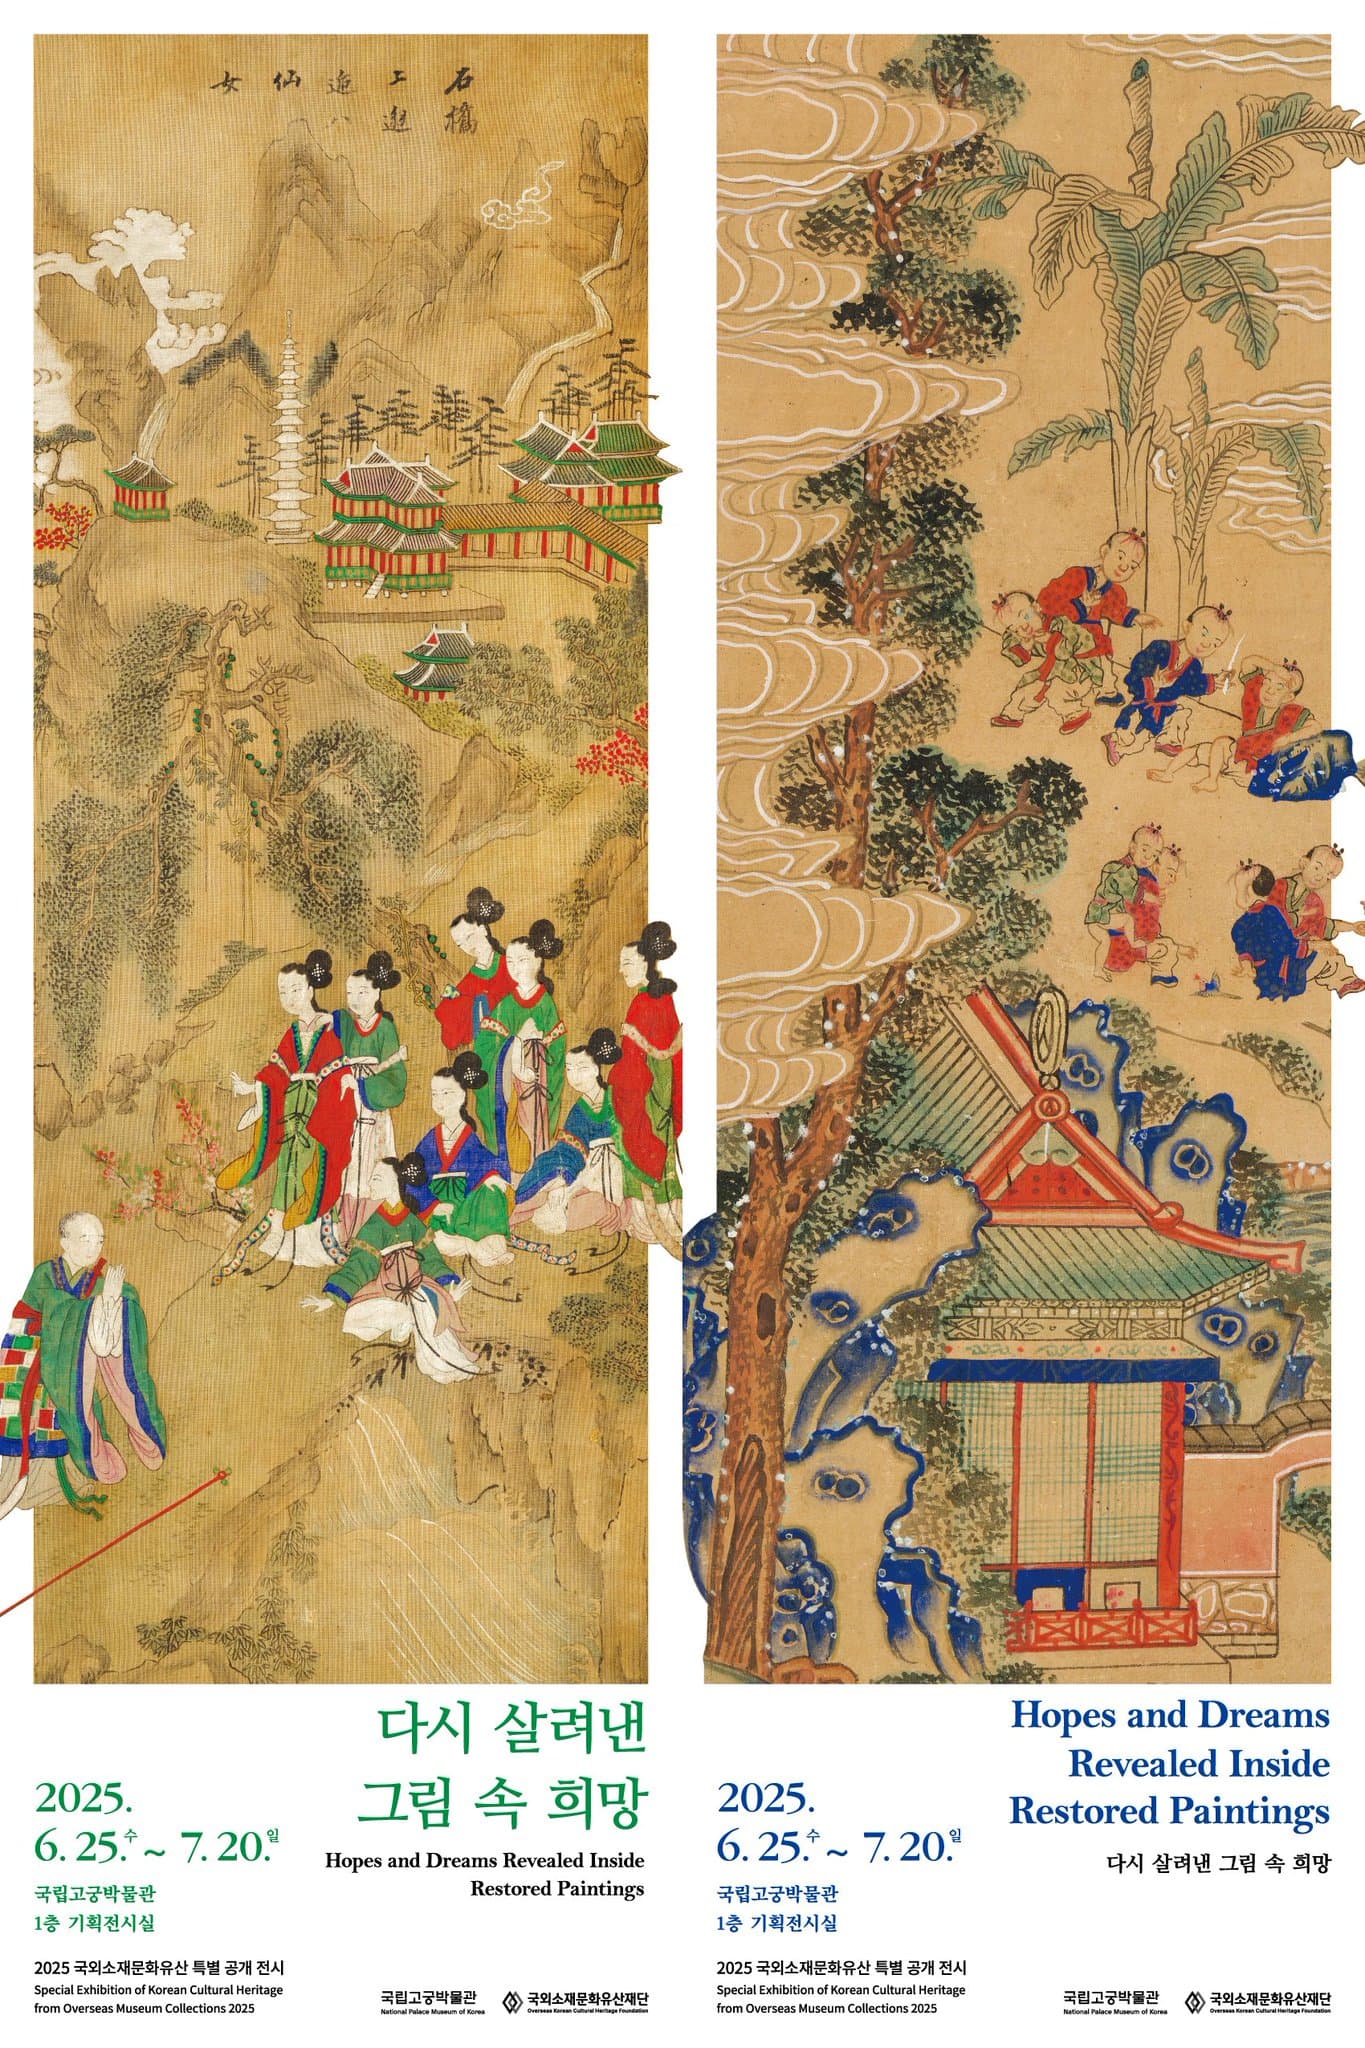 石橋
上邂
逅八
仙
女
다시 살려낸
그림 속 희망
Hopes and Dreams Revealed Inside
Restored Paintings
2025.
6. 25.수 ~ 7. 20.일
국립고궁박물관
1층 기획전시실
2025 국외소재문화유산 특별 공개 전시
Special Exhibition of Korean Cultural Heritage
from Overseas Museum Collections 2025
국립고궁박물관
National Palace Museum of Korea
국외소재문화유산재단
Overseas Korean Cultural Heritage Foundation
Hopes and Dreams
Revealed Inside
Restored Paintings
다시 살려낸 그림 속 희망
2025.
6. 25.수 ~ 7. 20.일
국립고궁박물관
1층 기획전시실
2025 국외소재문화유산 특별 공개 전시
Special Exhibition of Korean Cultural Heritage
from Overseas Museum Collections 2025
국립고궁박물관
National Palace Museum of Korea
국외소재문화유산재단
Overseas Korean Cultural Heritage Foundation